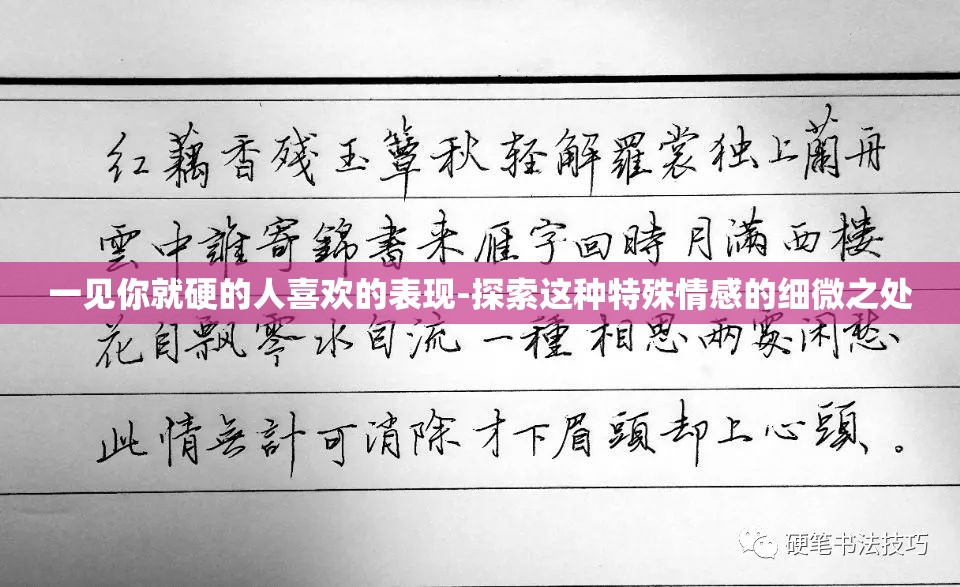 红藕香残玉簟秋轻解羅裳独上蘭舟
雲中誰寄錦書来雁字回時月滿西楼
一见你就硬的人喜欢的表现-探索这种特殊情感的细微之处
花自飘零水自流一種相思两處闲愁
此情无計可消除才下眉頭却上心頭。
硬笔书法技巧